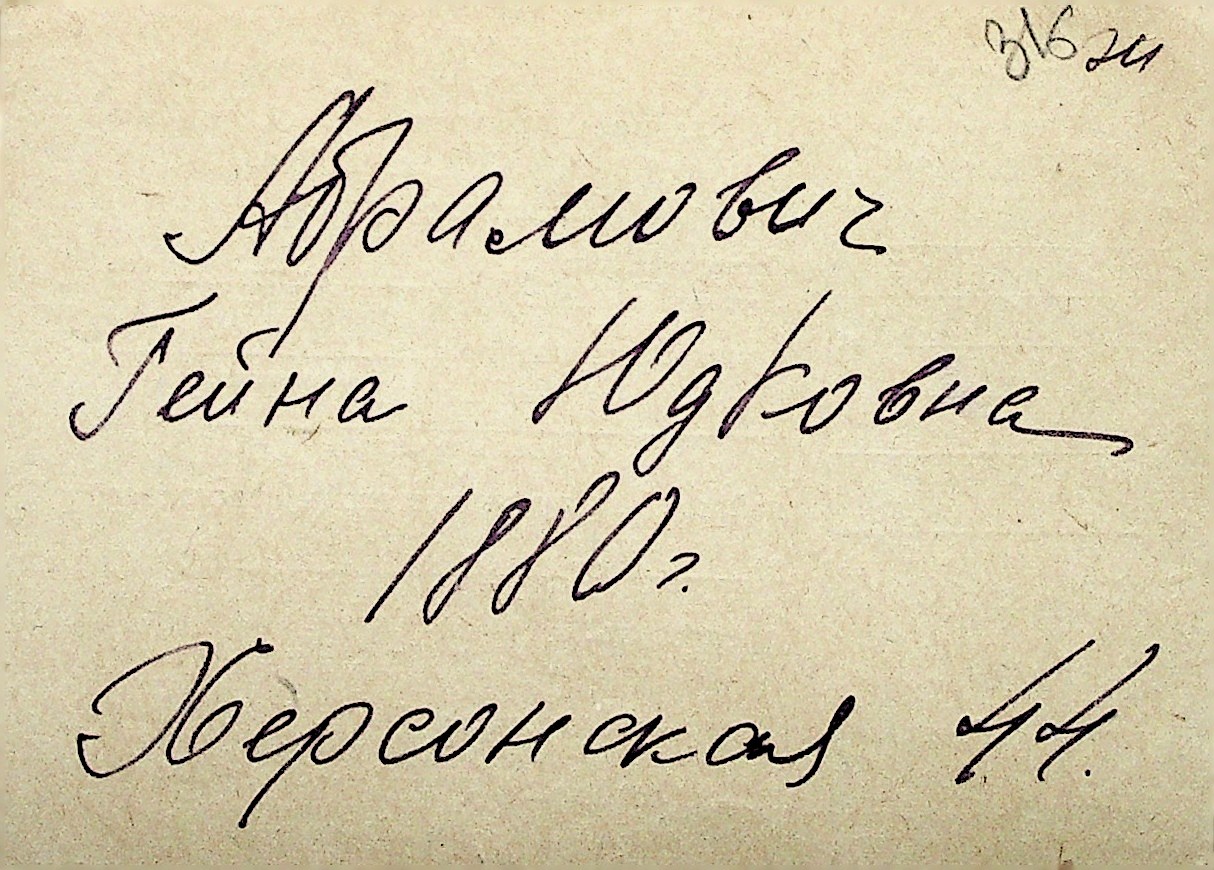 316 эи
Абрамович
Гейна Юдковна
1880 г.
Херсонская 44.